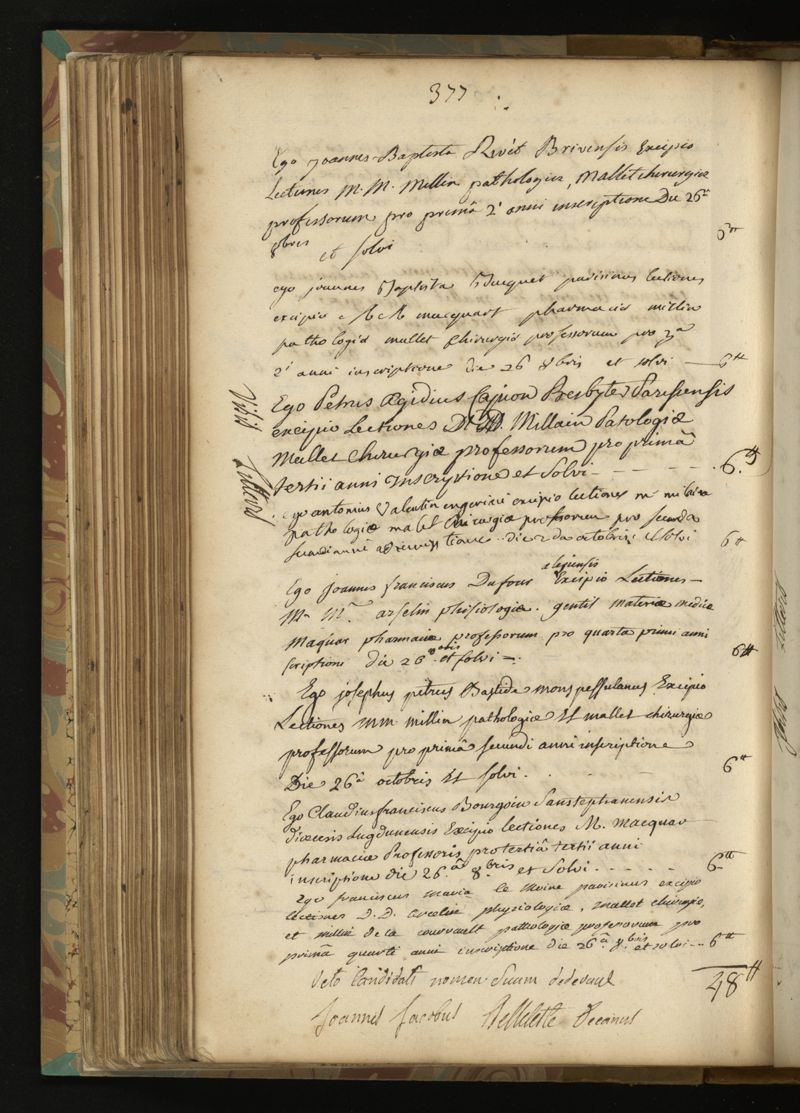 377
Ego joannes Baptista Rivet Brivensis Excipio
Lectiones M. M. Millin pathologiæ, Mallet chirurgiæ
professorum pro primâ 2i anni inscriptione Die 26â
8bris et solvi 6tt
ego joannes Baptista parisinus lectiones
excipio M M macquart pharmaciæ millin
pathologiæ mallet chirurgiæ professorum pro
2i anni inscriptione die 26 8bris et solvi — 6tt
Ego Petrus Ægidius Cajnon Presbyter Parisiensis
excipio Lectiones D. D. Millain Patologiæ
Mallet Chirurgiæ professorum pro primâ
tertii anni Inscriptione et Solvi - - - - - 6tt
ego antonius Valentin excipio lectiones m
pathologiæ malet chirurgiæ professorum pro secunda
die octobris et solvi 6tt
Ego joannes franciscus Dufour Excipio Lectiones —
M. M. arselin phisiologiæ. gentil materiæ medicæ
Maquar pharmaciæ professorum pro quarta primi anni
scriptione die 26 8bris et solvi — 6tt
Ego josephus petrus Bastide monspessulanus Excipio
Lectiones mm millin pathologiæ Et mallet chirurgiæ
professorum pro primâ secundi anni inscriptione
Die 26â octobris Et solvi. 6tt
Ego Claudius franciscus Bourgoin Sanstephanensis
diœcesis Lugdunensis Excipio lectiones M. Macquar
pharmaciæ Professoris pro tertiâ tertii anni
inscriptione die 26â 8bris et Solvi. - - - - - 6tt
Ego franciscus maria le Moine parisinus excipio
lectiones D. D. physiologiæ, mallet chirurgiæ,
et millin de la courvault pathologiæ professorum pro
primâ quarti anni inscriptione die 26â 8bris et solvi — 6tt
octo Candidati nomen Suum dederunt 48tt
Joannes Jacobus Belleteste Decanus